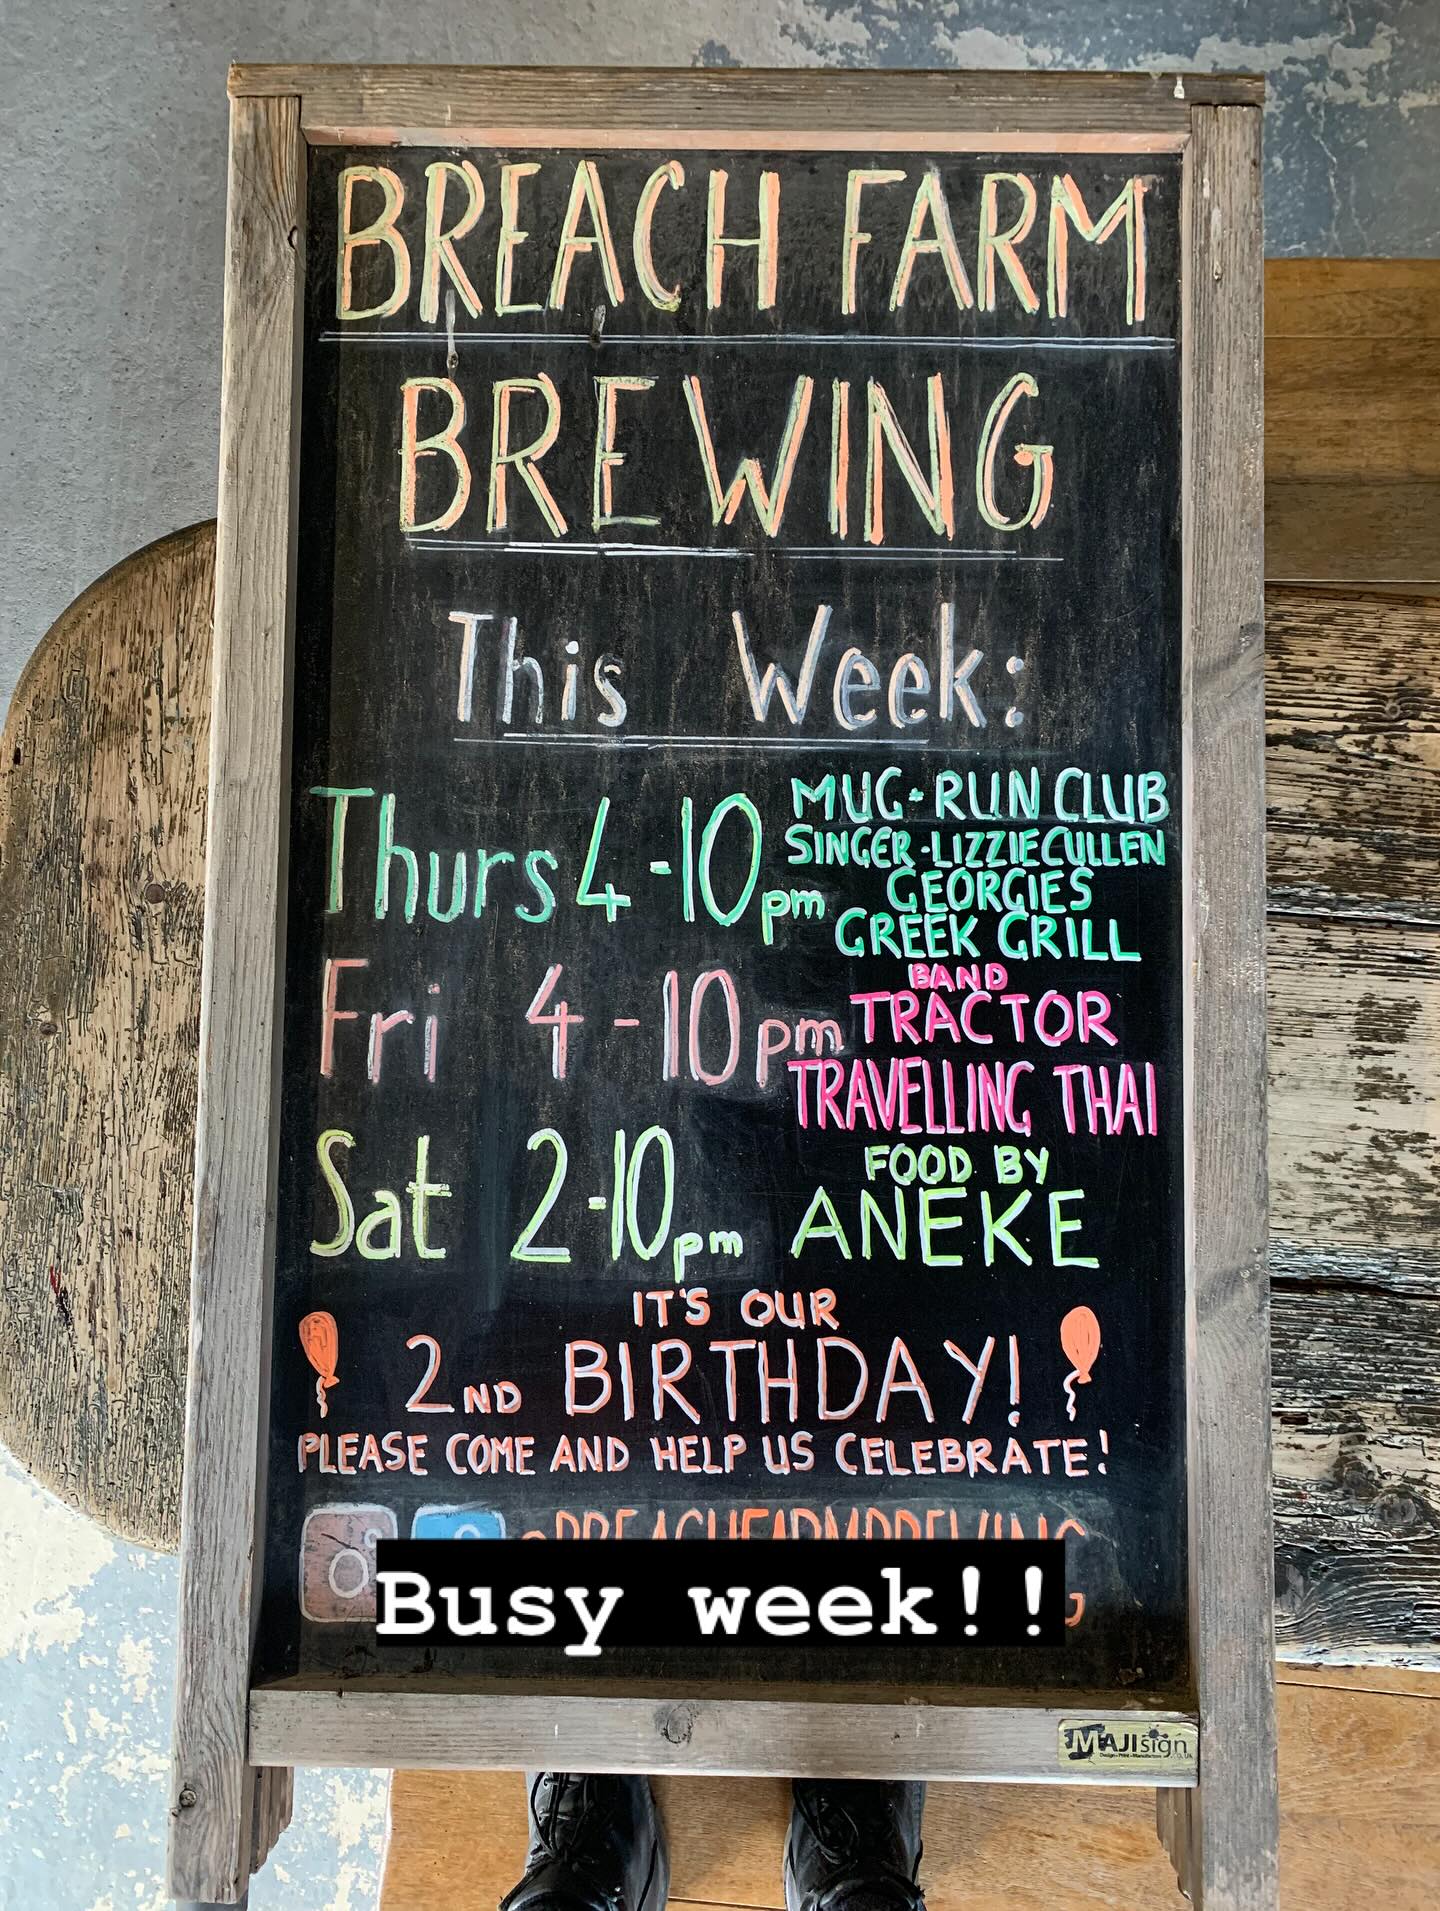 BREACH FARM
BREWING
This Week:
Thurs 4-10pm
MUG-RUN CLUB
SINGER-LIZZIE CULLEN
GEORGIES
GREEK GRILL
Fri 4-10pm
BAND
TRACTOR
TRAVELLING THAI
Sat 2-10pm
FOOD BY
ANEKE
IT'S OUR
2ND BIRTHDAY!
PLEASE COME AND HELP US CELEBRATE!
@BREACHFARMBREWING
Busy week!!
MAJISign